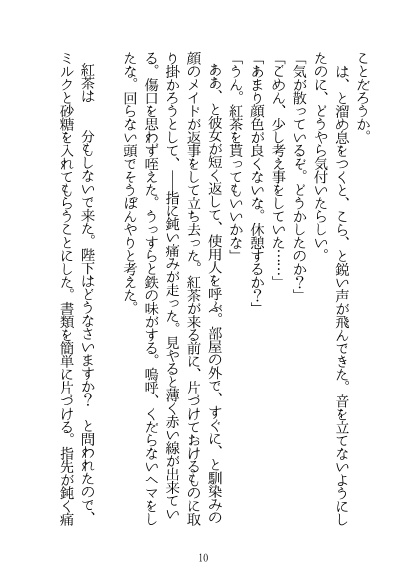 ことだろうか。
は、と溜め息をつくと、こら、と鋭い声が飛んできた。音を立てないようにし
たのに、どうやら気付いたらしい。
「気が散っているぞ。どうかしたのか?」
「ごめん、少し考え事をしていた……」
「あまり顔色が良くないな。休憩するか?」
「うん。紅茶を貰ってもいいかな」
ああ、と彼女が短く返して、使用人を呼ぶ。部屋の外で、すぐに、と馴染みの
顔のメイドが返事をして立ち去った。紅茶が来る前に、片づけておけるものに取
り掛かろうとして、――指に鈍い痛みが走った。見やると薄く赤い線が出来てい
る。傷口を思わず咥えた。うっすらと鉄の味がする。嗚呼、くだらないヘマをし
たな。回らない頭でそうぼんやりと考えた。
紅茶は 分もしないで来た。陛下はどうなさいますか? と問われたので、
ミルクと砂糖を入れてもらうことにした。書類を簡単に片づける。指先が鈍く痛
10